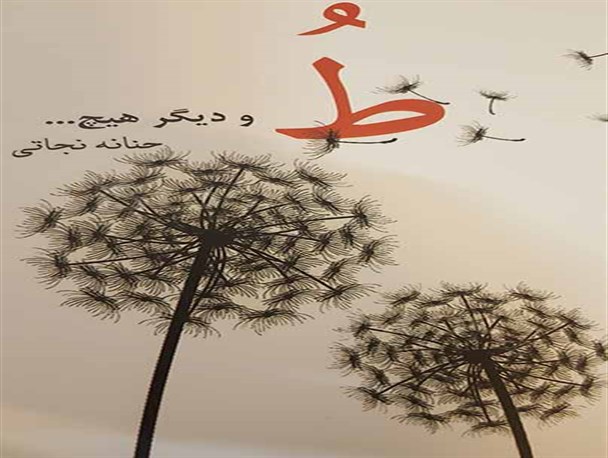 طُ
و دیگر هیچ...
حنانه نجاتی